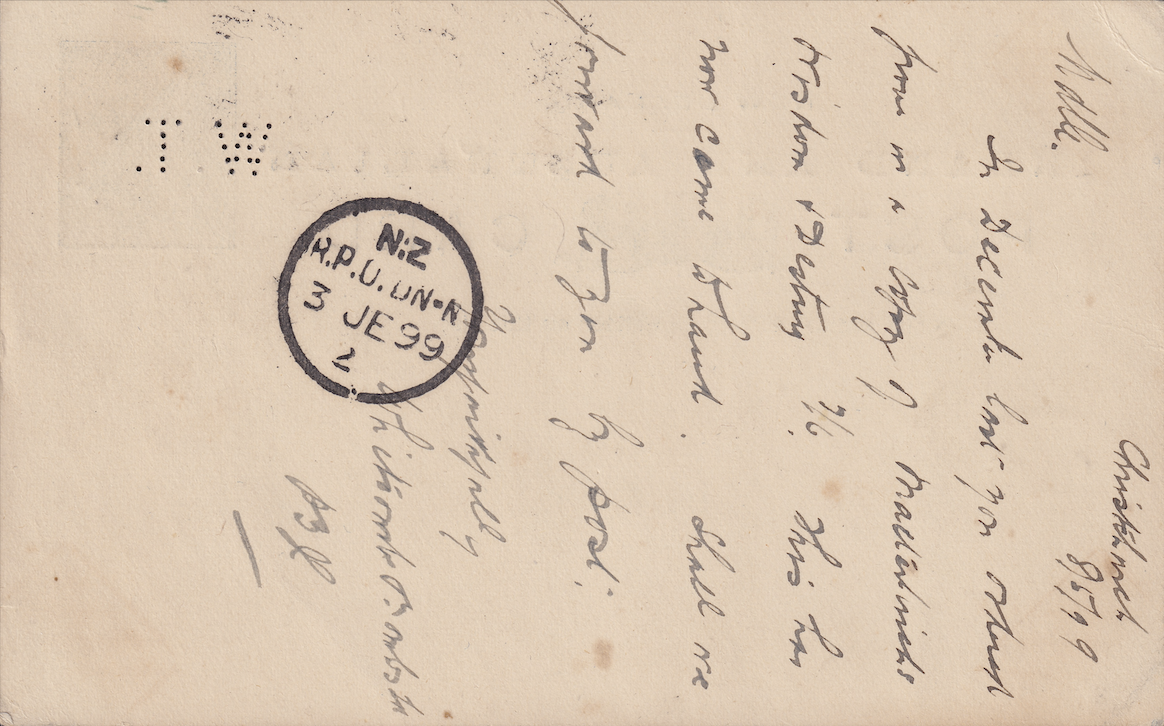 Christchurch
8/5/99
Mdll.
In December last you ordered
from us a copy of Maeterlincks
Wisdom & Destiny 7/6. This has
now come to hand. Shall we
forward to you by post.
Yours faithfully
Whitcombe & Tombs Ltd
N:Z
R.P.O. DN-N
3 JE 99
2
W T.